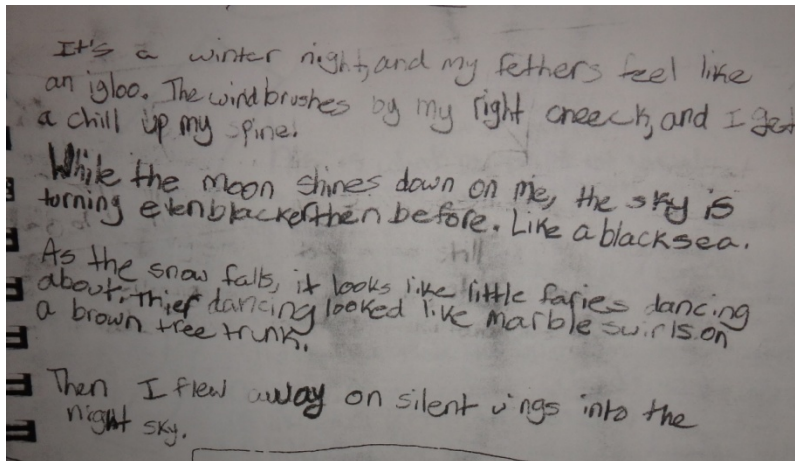 It's a winter night, and my fethers feel like
an igloo. The wind brushes by my right cneeck, and I get
a chill up my spine.
While the moon shines down on me, the sky is
torning even blacker then before. Like a black sea.
As the snow falls, it looks like little faries dancing
about. Thier dancing looked like marble swirls on
a brown tree trunk.
Then I flew away on silent wings into the
night sky.